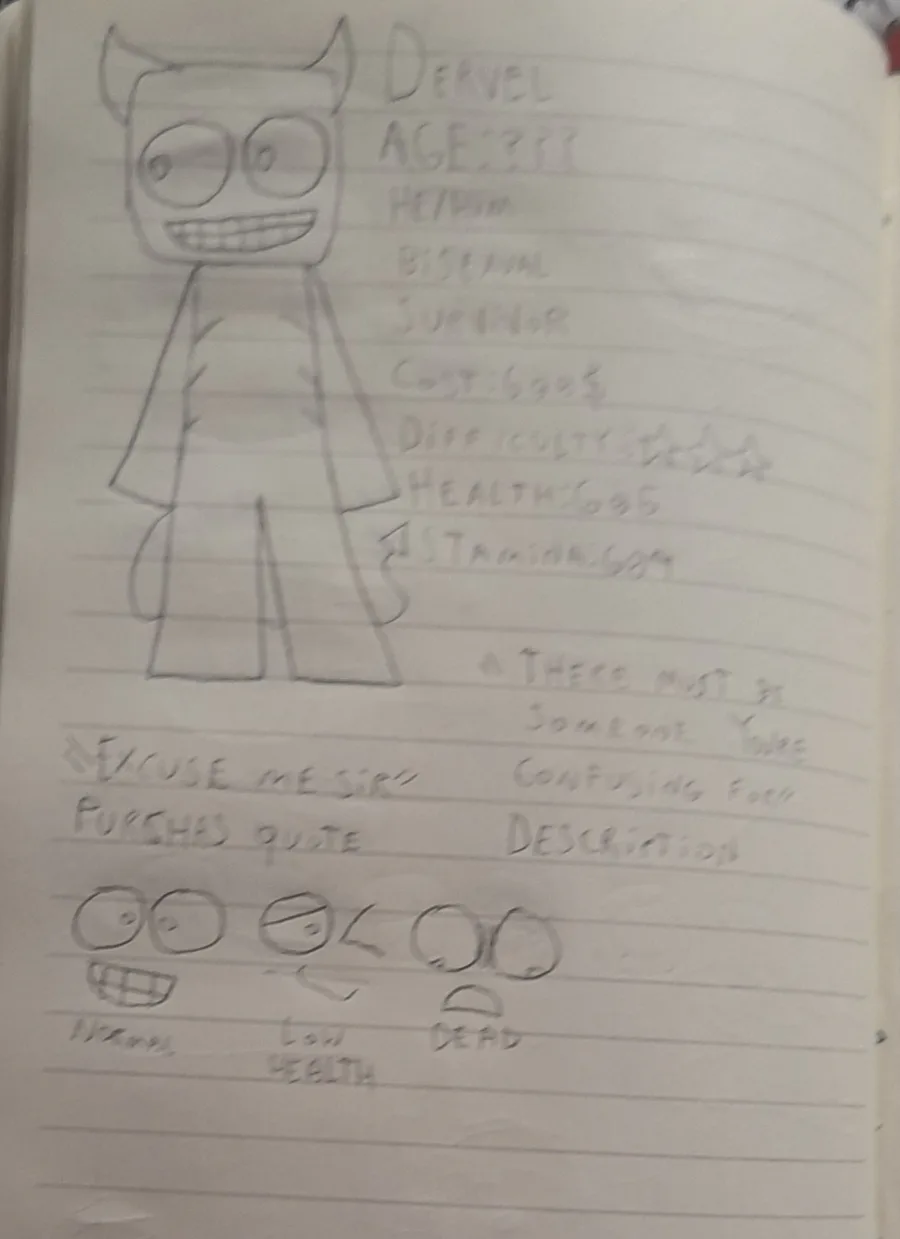 DERVEL
AGE:???
HE/HIM
BISEXUAL
SURVIVOR
COST:600$
DIFFICULTY:☆☆☆
HEALTH:
STAMINA:
"THERE MUST BE
SOMEONE YOURE
CONFUSING FOR"
DESCRIPTION
"EXCUSE ME SIR"
PURSHAS QUOTE
NORMAL
LOW
HEALTH
DEAD